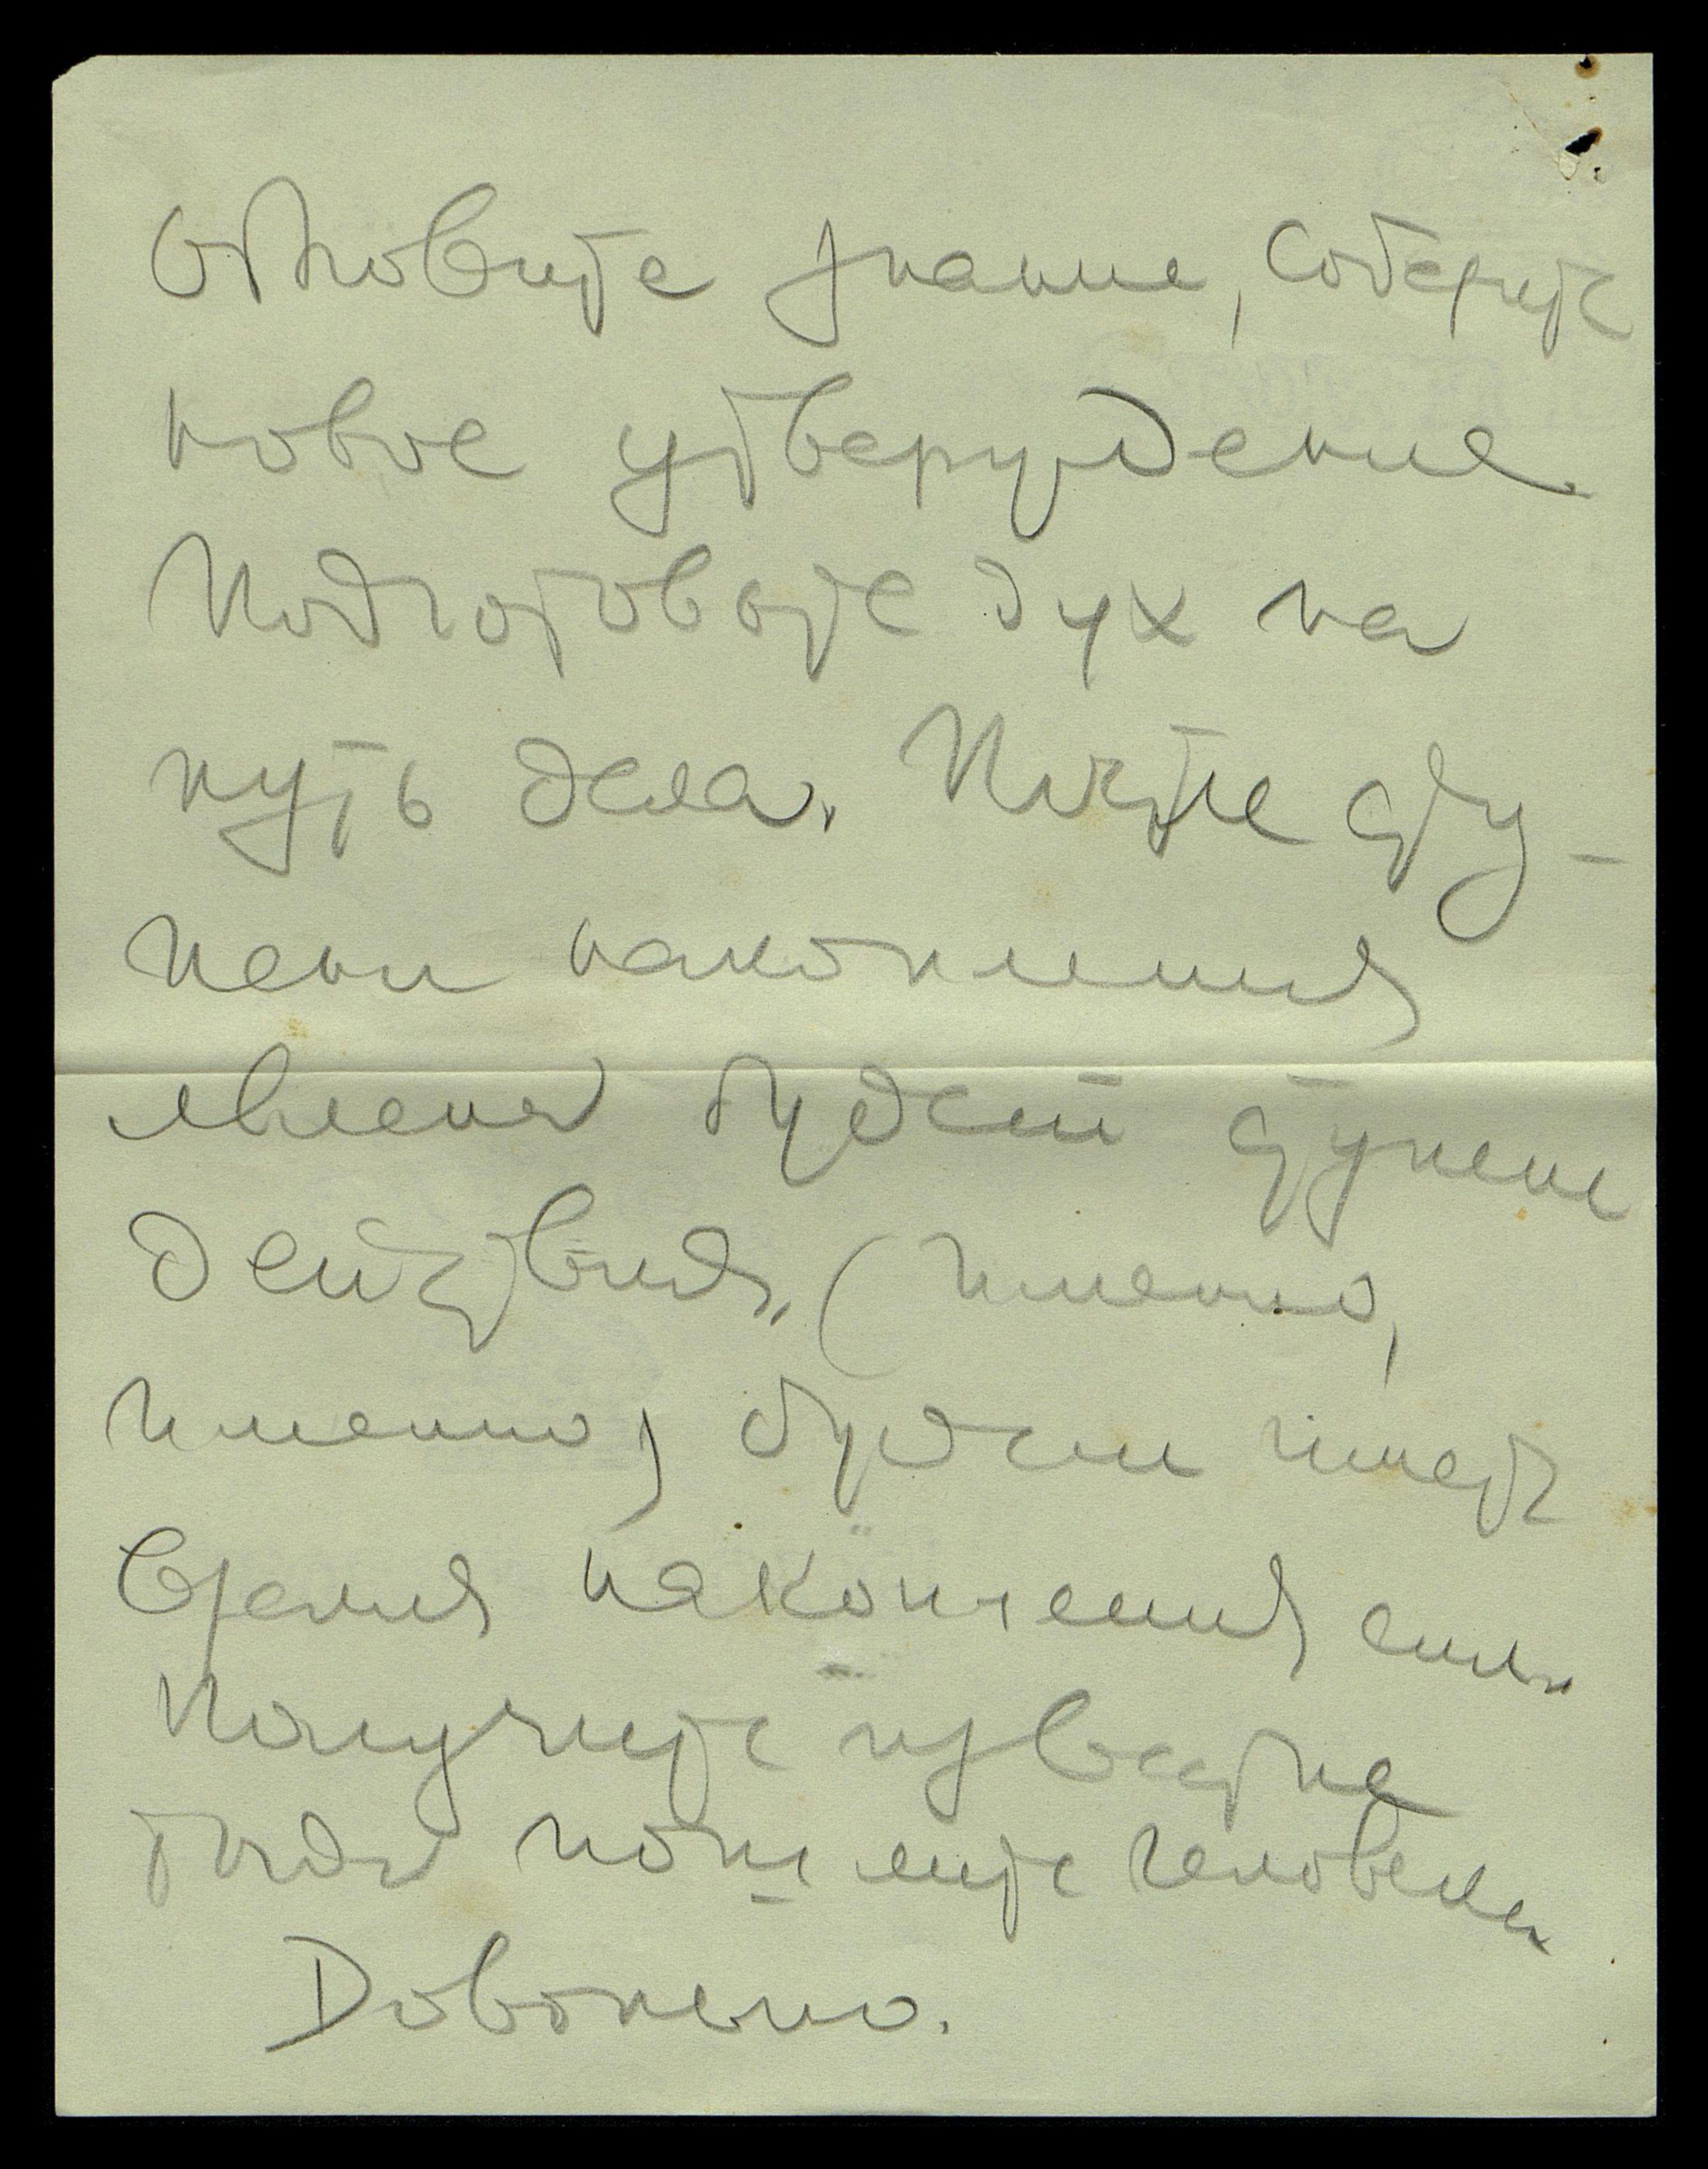 Обновите знание, соберите
новое утверждение
Подготовьте дух на
путь дела. После сту-
пени накопления
явлена будет ступень
действия. (Именно,
именно) будем иметь
время накопления сил.
Получите известие
тогда пошлите человека
Довольно.